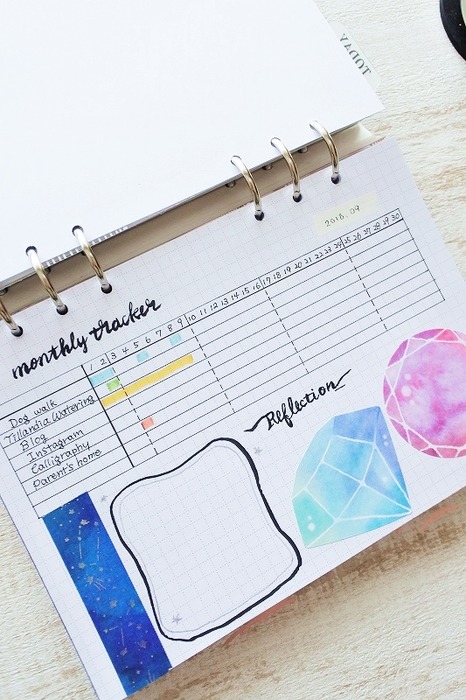 TODAY
2018.09
monthly tracker
1 2 3 4 5 6 7 8 9 10 11 12 13 14 15 16 17 18 19 20 21 22 23 24 25 26 27 28 29 30
Dog walk
Tillandia Watering
Blog
Instagram
Calligraphy
Parent's home
Reflection